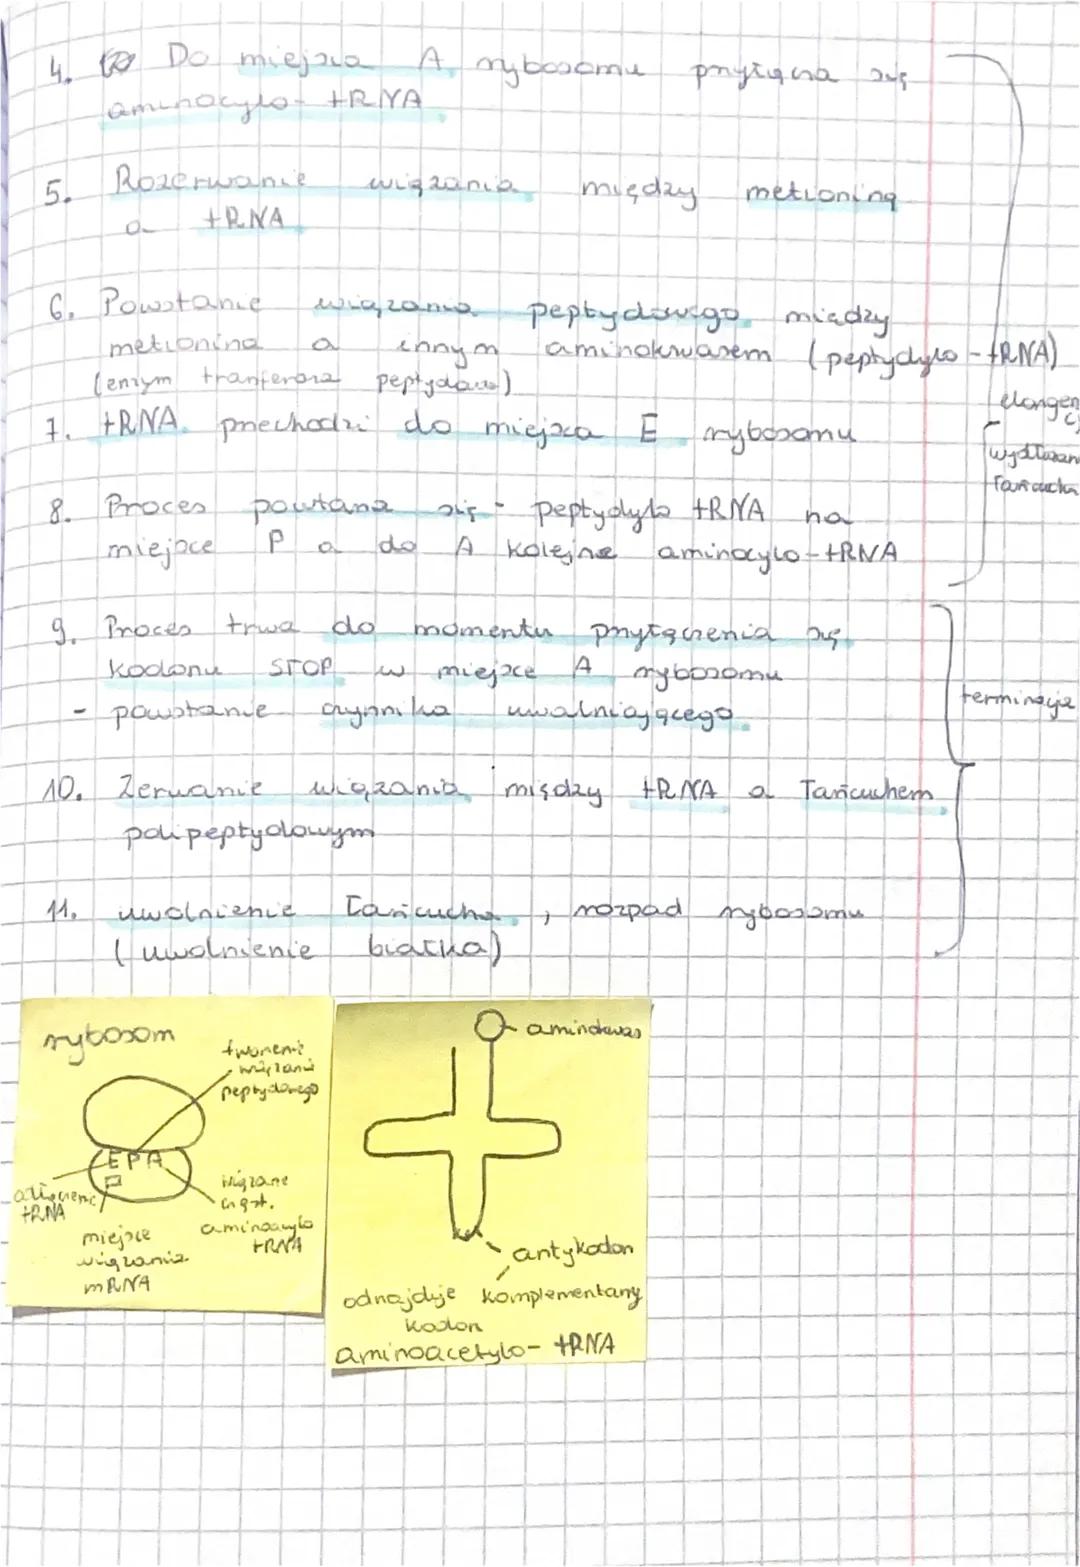 4. Do miejsca A rybosomu przyłącza się
aminocylo- tRNA
5. Rozerwanie wiązania między metioniną
a tRNA
6. Powstanie wiązania peptydowego między
metionina a innym aminokwasem (peptydylo - tRNA)
(enzym tranferaza peptydowa)
elongen
cj
7. tRNA przechodzi do miejsca E rybosomu
wydłużan
łańcucha
8. Proces powtarza się - peptydylo tRNA na
miejsce P a do A kolejne aminocylo-tRNA
9. Proces trwa do momentu przyłączenia się
kodonu STOP w miejsce A rybosomu
- powstanie czynnika uwalniającego
terminacja
10. Zerwanie wiązania między tRNA a łańcuchem
polipeptydowym
11. uwolnienie łańcucha, rozpad rybosomu
(uwolnienie białka)
rybosom
tworzenie
wiązania
peptydowego
E P A
P
odłączenie
tRNA
miejsce
wiązania
mRNA
wiązane
cząst.
aminoacylo
tRNA
aminokwas
antykodon
odnajduje komplementarny
kodon
aminoacetylo- tRNA